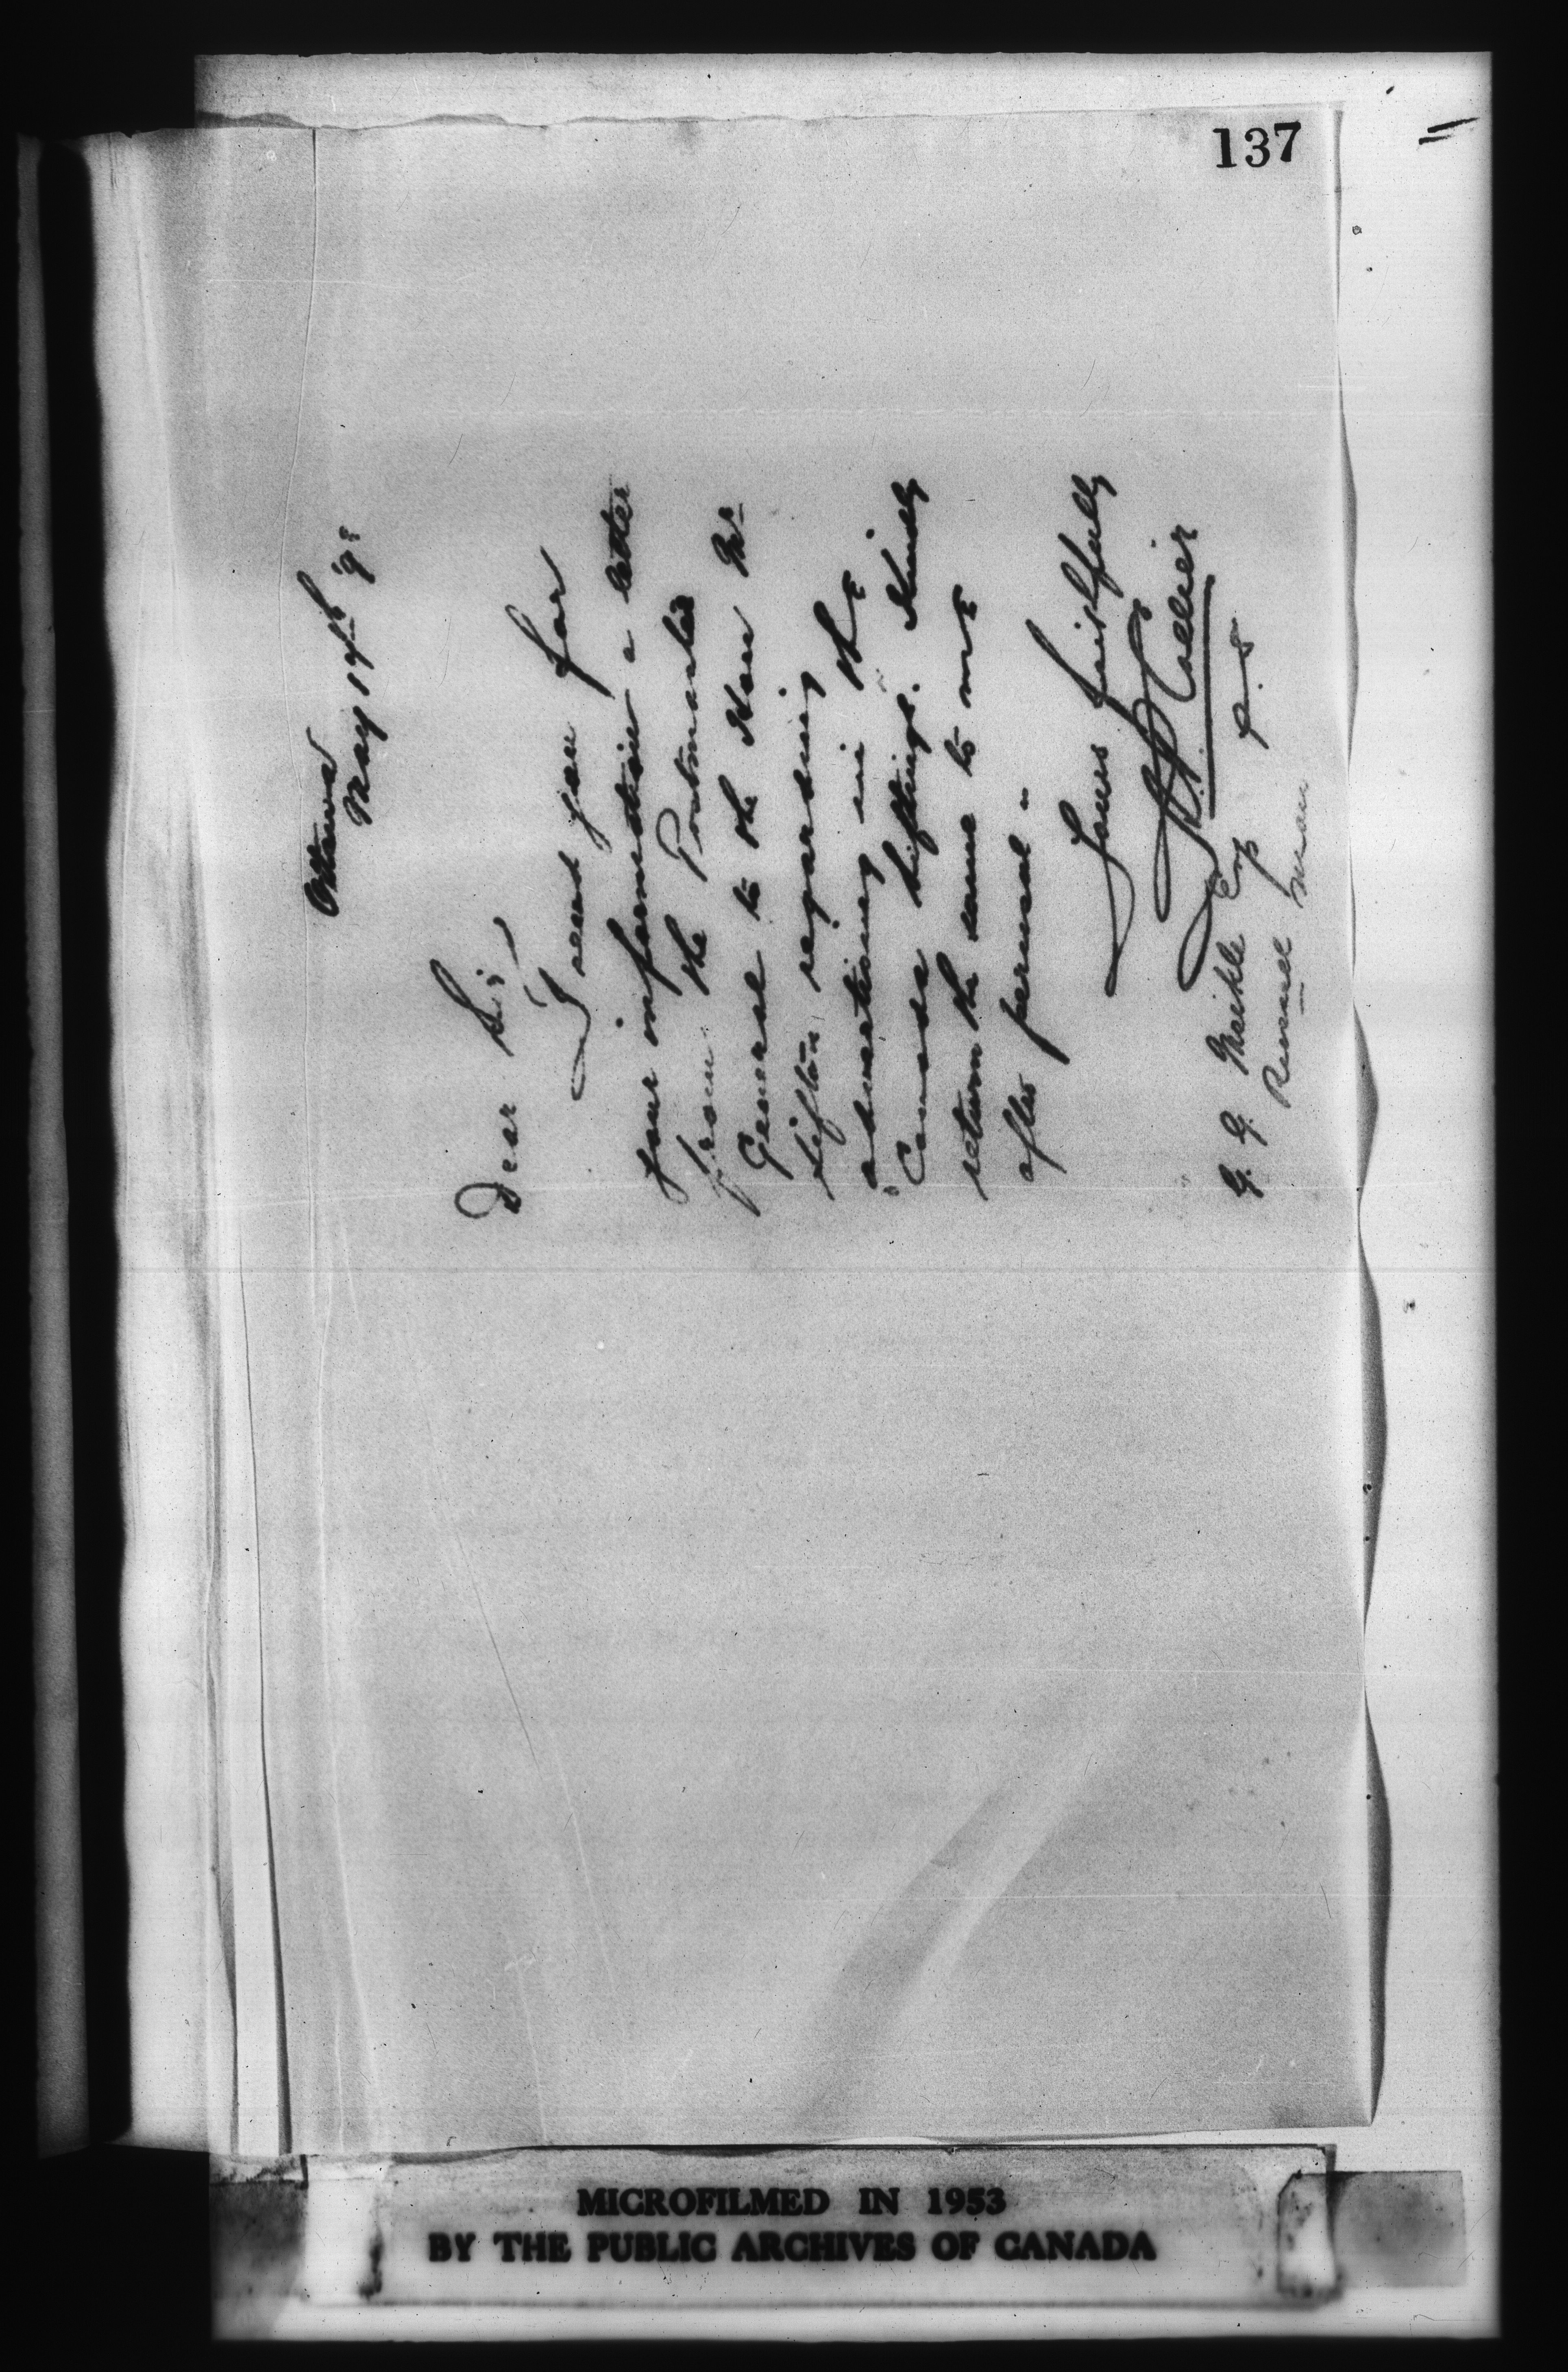 137
Ottawa
May 19th '98
Dear Sir,
I send you for
your information a letter
from the Postmaster
General to the Hon Mr
Sifton regarding
advertising in the
"Canada Siftings". Kindly
return the same to me
after perusal -
Yours faithfully
Collier
P.S
G. G. Meikle Esq
Man
MICROFILMED IN 1953
BY THE PUBLIC ARCHIVES OF CANADA